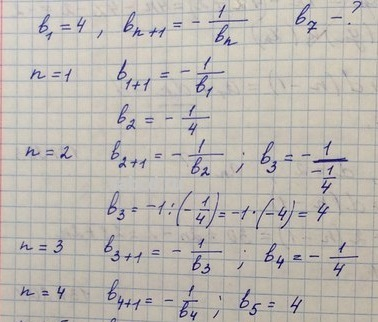 b₁ = 4 , bₙ₊₁ = - 1/bₙ b₇ - ?
n = 1 b₁₊₁ = - 1/b₁
b₂ = - 1/4
n = 2 b₂₊₁ = - 1/b₂ ; b₃ = - 1/(-1/4)
b₃ = -1 : (- 1/4) = -1 · (-4) = 4
n = 3 b₃₊₁ = - 1/b₃ ; b₄ = - 1/4
n = 4 b₄₊₁ = - 1/b₄ ; b₅ = 4